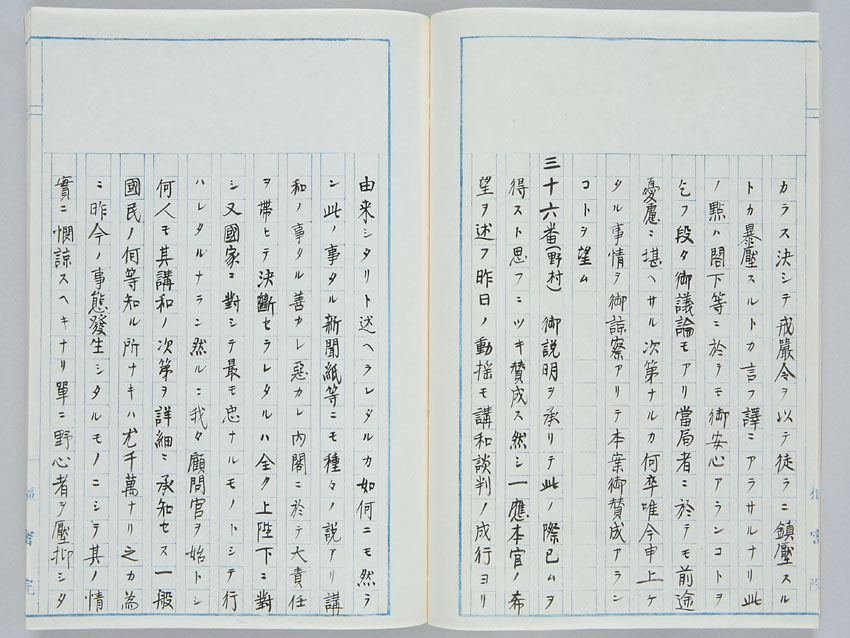 カラス決シテ戒嚴令ヲ以テ徒ラニ鎮壓スル
トカ暴壓スルトカ言フ譯ニアラサルナリ此
ノ點ハ閣下等ニ於テモ御安心アランコトヲ
乞フ段々御議論モアリ當局者ニ於テモ前途
憂慮ニ堪ヘサル次第ナルカ何卒唯今申上ケ
タル事情ヲ御諒察アリテ本案御賛成アラン
コトヲ望ム
三十六番(野村) 御説明ヲ承リテ此ノ際已ムヲ
得スト思フニツキ賛成ス然シ一應本官ノ希
望ヲ述フ昨日ノ動揺モ講和談判ノ成行ヨリ
由来シタリト述ヘラレタルカ如何ニモ然ラ
ン此ノ事タル新聞紙等ニモ種々ノ説アリ講
和ノ事タル善カレ惡カレ内閣ニ於テ大責任
ヲ帯ヒテ決斷セラレタルハ全ク上陛下ニ對
シ又國家ニ對シテ最モ忠ナルモノトシテ行
ハレタルナラン然ルニ我々顧問官ヲ始トシ
何人モ其講和ノ次第ヲ詳細ニ承知セス一般
國民ノ何等知ル所ナキハ尤千萬ナリ之カ為
ニ昨今ノ事態發生シタルモノニシテ其ノ情
實ニ憫諒スヘキナリ單ニ野心者ヲ壓抑シタ
樞密院
樞密院